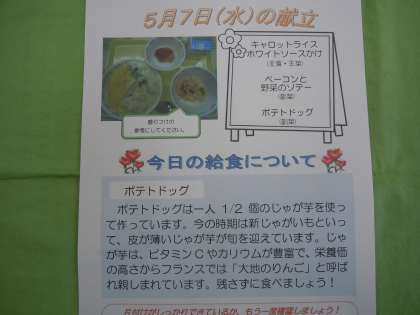 5月7日(水)の献立
キャロットライス
ホワイトソースかけ
(主食・主菜)
ベーコンと
野菜のソテー
(副菜)
ポテトドッグ
(副菜)
盛りつけの
参考にしてください。
今日の給食について
ポテトドッグ
ポテトドッグは一人 1/2 個のじゃが芋を使っ
て作っています。今の時期は新じゃがいもといっ
て、皮が薄いじゃが芋が旬を迎えています。じゃ
が芋は、ビタミンCやカリウムが豊富で、栄養価
の高さからフランスでは「大地のりんご」と呼ば
れ親しまれています。残さずに食べましょう!